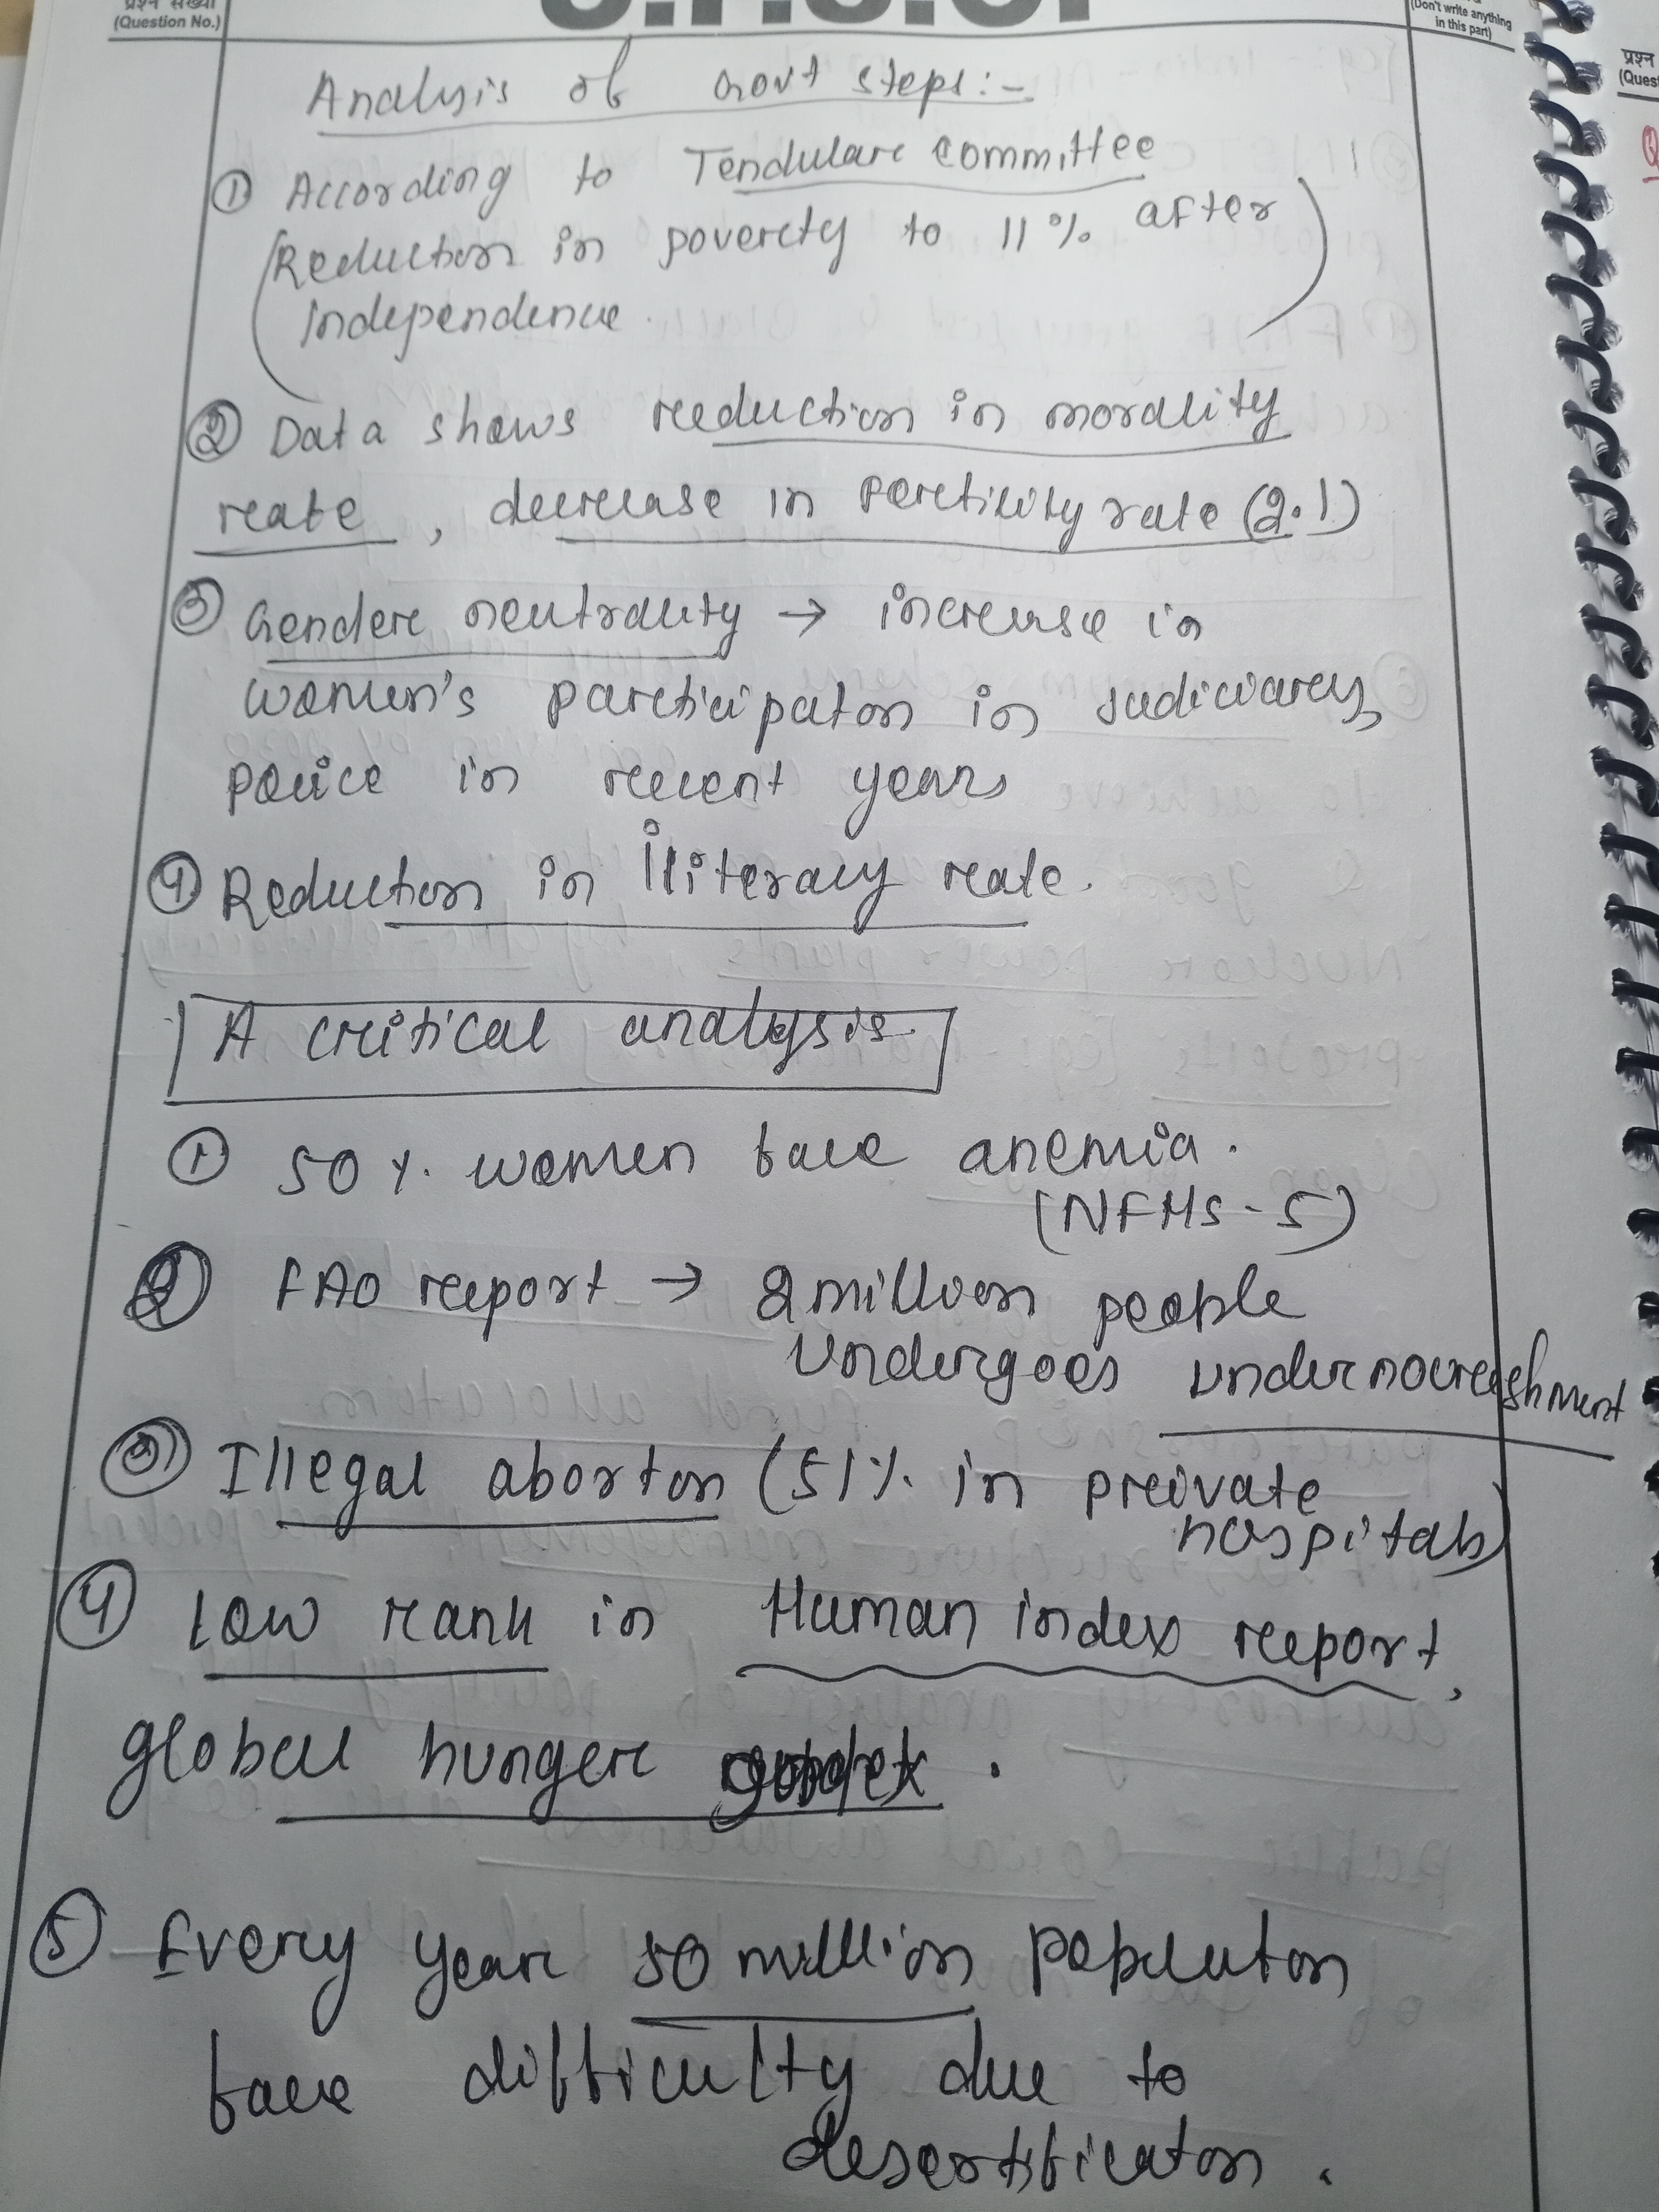 प्रश्न संख्या
(Question No.)
(Don't write anything
in this part)
प्रश्न
(Ques
Analysis of Govt steps:-
① According to Tendulare committee
(Reduction in poverety to 11% after
independence.)
② Data shows reeduction in morality
reate, decrease in feretility rate (2.1)
③ Gendere neutrality → increase in
women's pareticipaton in judiciarey,
police in recent years
④ Reduction in Iliteracy reate.
A critical analysis
① 50%. women face anemia.
(NFHS-5)
② FAO reeport → 2 million people
Undergoes undernoureishment
③ Illegal aborton (51%. in preivate
hospitals)
④ Low rank in Human index reeport,
global hungere
⑤ Every yeare 50 million populaton
face difficulty due to
desertificaton.